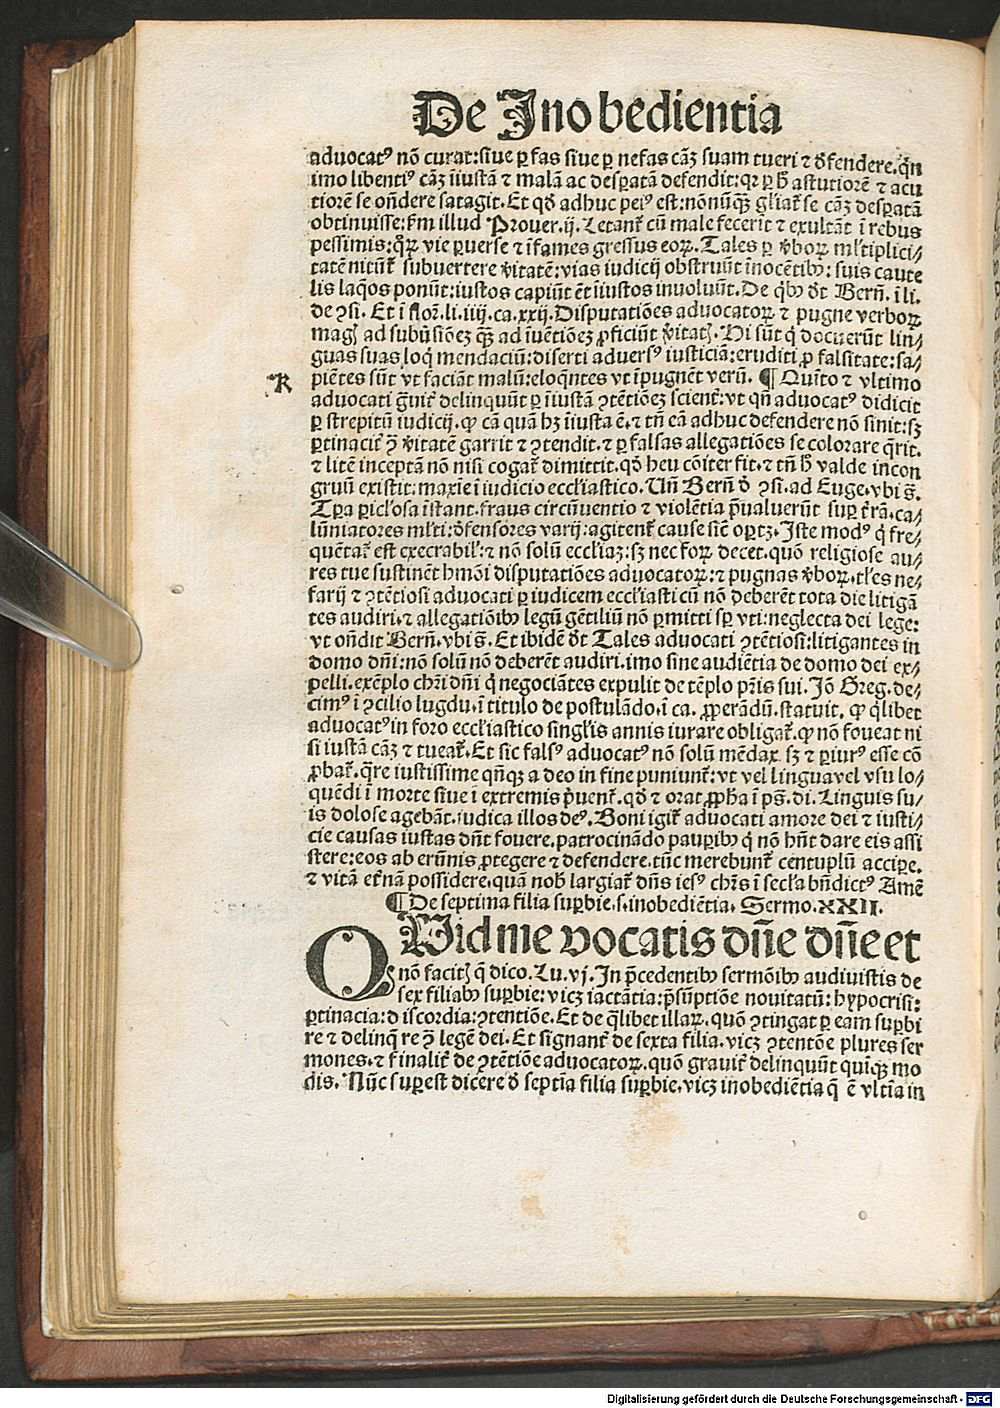 De Inobedientia
aduocatꝰ nō curat:ſiue ꝑ fas ſiue ꝑ nefas cāꝫ ſuam tueri ⁊ ꝺ̄fendere.qn̄
imo libentiꝰ cāꝫ īiuſtā ⁊ malā ac deſꝑatā defendit:qꝛ ꝑ ħ aſtutiorē ⁊ acu
tiorē ſe on̄dere ſatagit. Et qꝺ̄ adhuc peiꝰ eſt:nōnūqꝫ gl̄iat̄ ſe cāꝫ deſꝑatā
obtinuiſſe:ẜm illud Prouer.ij. Letant̄ cū male fecerīt ⁊ exultāt ī rebus
peſſimis:qͦꝝ vie ꝑuerſe ⁊ īfames greſſus eoꝝ. Tales ꝑ v̄boꝝ ml̄tiplici⸗
tatē nitūt̄ ſubuertere v̄itatē:vias iudicij obſtruūt īnocētibꝰ: ſuis caute
lis laq̄os ponūt:iuſtos capiūt ēt īiuſtos inuoluūt. De qͥbꝰ ꝺ̄t Bern̄. ī li.
de ꝯſi. Et ī floꝛ̄.li.iiij.ca.xxij. Diſputatiōes aduocatoꝝ ⁊ pugne verboꝝ
magꝭ ad ſubūſiōeꝫ qͣꝫ ad īuētiōeꝫ ꝓficiūt v̄itatꝭ. Hi ſūt qͥ docuerūt lin⸗
guas ſuas loq̄ mendaciū:diſerti aduerſꝰ iuſticiā:eruditi ꝓ falſitate:ſa⸗
K
piētes ſūt vt faciāt malū:eloq̄ntes vt īpugnēt verū. ¶ Quīto ⁊ vltimo
aduocati gͣuit̄ delinquūt ꝑ īiuſtā ꝯtētiōeꝫ ſcient̄:vt qn̄ aduocatꝰ didicit
ꝑ ſtrepitū iudicij.ꝙ cā quā hꝫ īiuſta ē.⁊ tn̄ eā adhuc defendere nō ſinit:ſꝫ
ꝑtinacit̄ ꝯͣ v̄itatē garrit ⁊ ꝯtendit.⁊ ꝑ falſas allegatiōes ſe colorare qͥrit.
⁊ litē inceptā nō niſi cogat̄ dimittit.qꝺ̄ heu cōiter fit.⁊ tn̄ ħ valde incon
gruū exiſtit:maxīe ī iudicio eccl̄iaſtico. Un̄ Bern̄ ꝺ̄ ꝯſi. ad Euge.vbi ſ̄.
Tꝑa ꝑicl̄oſa īſtant.fraus circūuentio ⁊ violētia p̄ualuerūt ſuꝑ t̄rā.ca⸗
lūniatores ml̄ti:ꝺ̄fenſores varij:agitent̄ cauſe ſic̄ oꝑtꝫ. Iſte modꝰ qͥ fre⸗
quētat̄ eſt execrabil̄:⁊ nō ſolū eccl̄iaꝫ:ſꝫ nec foꝝ decet.quō religioſe au⸗
res tue ſuſtinēt hmōi diſputatiōes aduocatoꝝ:⁊ pugnas v̄boꝝ.tl̄es ne⸗
farij ⁊ ꝯtētioſi aduocati ꝑ iudicem eccl̄iaſticū nō deberēt tota die litigā
tes audiri.⁊ allegatiōibꝰ legū gētiliū nō ꝑmitti ſꝑ vti:neglecta dei lege:
vt on̄dit Bern̄.vbi ſ̄. Et ibidē ꝺ̄t Tales aduocati ꝯtētioſi:litigantes in
domo dn̄i:nō ſolū nō deberēt audiri.imo ſine audiētia de domo dei ex⸗
pelli.exēplo chr̄i dn̄i qͥ negociātes expulit de tēplo pr̄is ſui. Jō Greg.de⸗
cimꝰ ī ꝯcilio lugdu.ī titulo de poſtulādo.ī ca. ꝓperādū.ſtatuit, ꝙ qͥlibet
aduocatꝰ in foro eccl̄iaſtico ſingl̄is annis iurare obligat̄.ꝙ nō foueat ni
ſi iuſtā cāꝫ ⁊ tueat̄. Et ſic falſꝰ aduocatꝰ nō ſolū mēdax ſꝫ ⁊ ꝑiurꝰ eſſe cō
ꝓbat̄.qͣre iuſtiſſime qn̄qꝫ a deo in fine puniunt̄:vt vel lingua vel vſu lo⸗
quēdi ī morte ſiue ī extremis p̄uent̄.qꝺ̄ ⁊ orat ꝓph̄a ī pͣs. di. Linguis ſu⸗
is doloſe agebāt.iudica illos deꝰ. Boni igit̄ aduocati amore dei ⁊ iuſti⸗
cie cauſas iuſtas dn̄t fouere.patrocinādo pauꝑibꝰ qͥ nō hn̄t dare eis aſſi
ſtere:eos ab erūnis ꝓtegere ⁊ defendere.tūc merebunt̄ centuplū accipe.
⁊ vitā et̄nā poſſidere.quā nobꝭ largiat̄ dn̄s ieſꝰ chr̄s ī ſecl̄a bn̄dictꝰ Amē
¶ De ſeptima filia ſuꝑbie.ſ.inobediētia. Sermo.XXII.
QUid me vocatis dn̄e dn̄e et
nō facitꝭ q̄ dico. Lu.vj. In p̄cedentibꝰ ſermōibꝰ audiuiſtis de
ſex filiabꝰ ſuꝑbie:vicꝫ iactātia:p̄ſūptiōe nouitatū:hypocriſi:
ꝑtinacia:diſcordia:ꝯtentiōe. Et de qͣlibet illaꝝ.quō ꝯtingat ꝑ eam ſuꝑbi
re ⁊ delinqͥre ꝯͣ legē dei. Et ſignant̄ de ſexta filia.vicꝫ ꝯtentōe plures ſer
mones.⁊ finalit̄ de ꝯtētiōe aduocatoꝝ.quō grauit̄ delinquūt quīqꝫ mo
dis. Nūc ſuꝑeſt dicere ꝺ̄ ſeptīa filia ſuꝑbie.vicꝫ inobediētia q̄ ē vltīa in
Digitalisierung gefördert durch die Deutsche Forschungsgemeinschaft - DFG